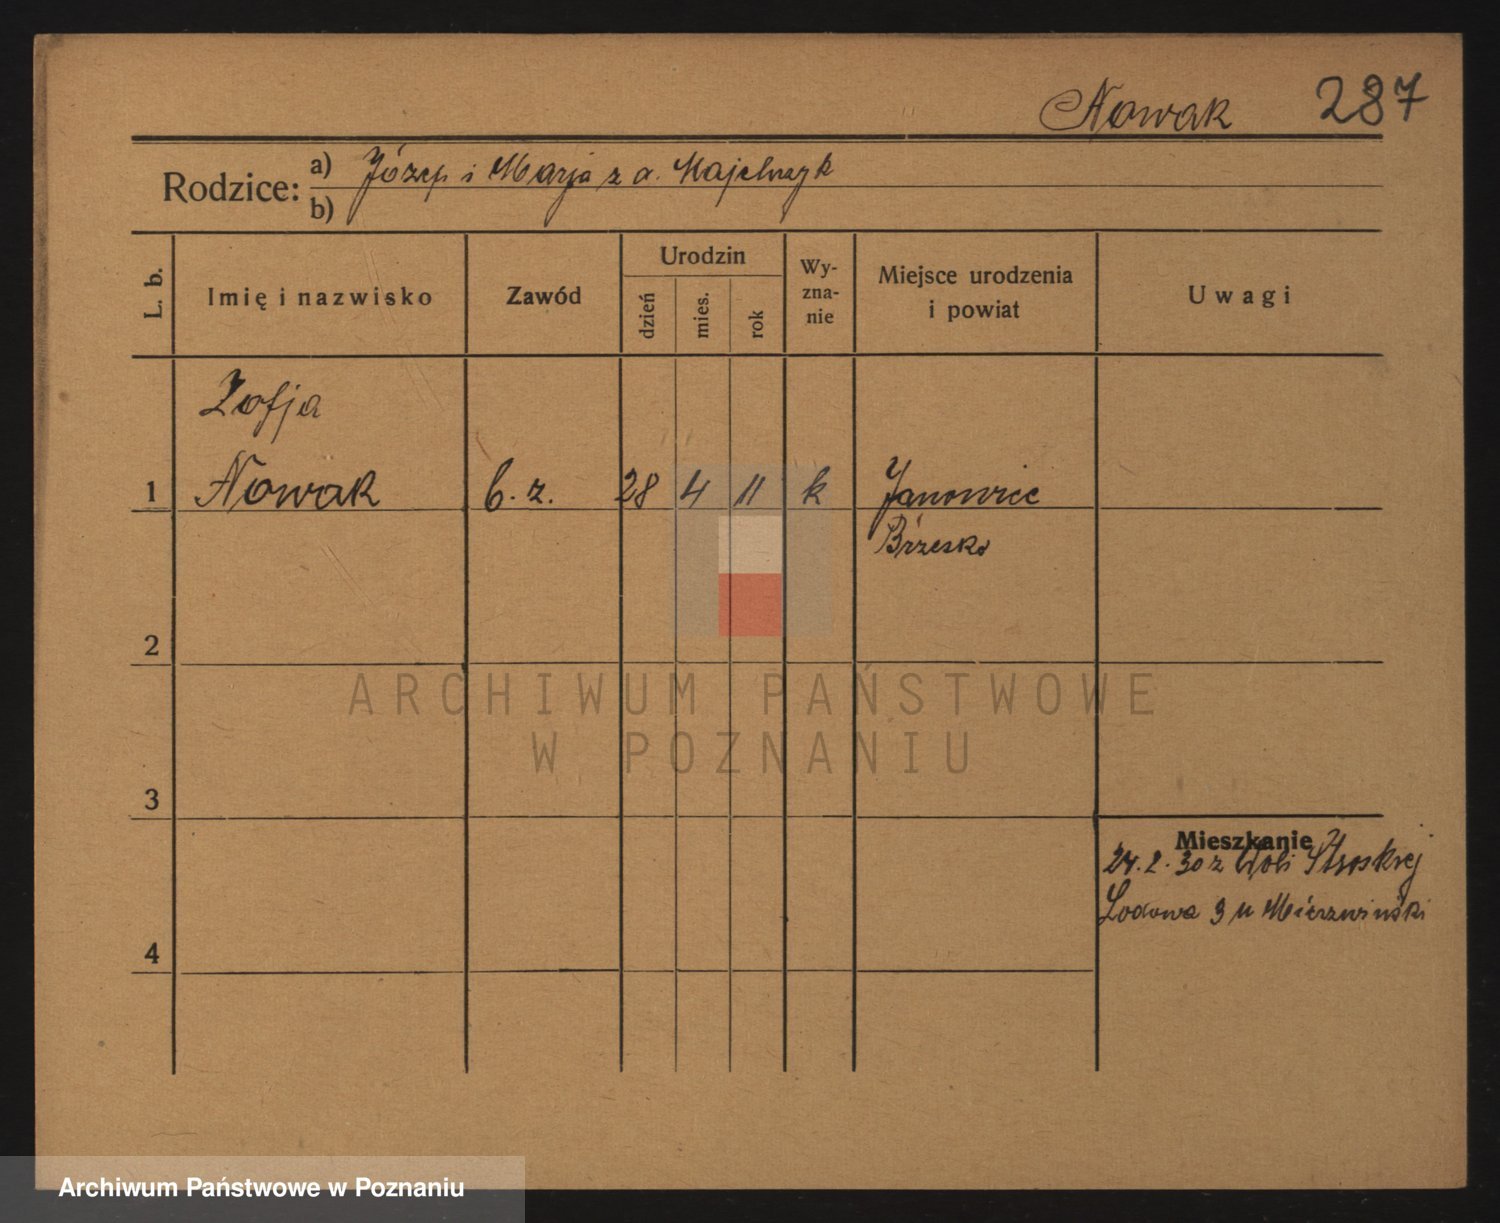 Nowak 287
Rodzice: a) Józef i Marja z d. Majchrzyk
b)
L. b. Imię i nazwisko Zawód Urodzin dzień mies. rok Wy-zna-nie Miejsce urodzenia i powiat Uwagi
Zofja
1 Nowak b. z. 28 4 11 k Janowice
Brzesko
2
ARCHIWUM PAŃSTWOWE
W POZNANIU
3
Mieszkanie
24. 2. 30 z Woli Stroskiej
4 Lodowa 3 u Mierzwiński
Archiwum Państwowe w Poznaniu